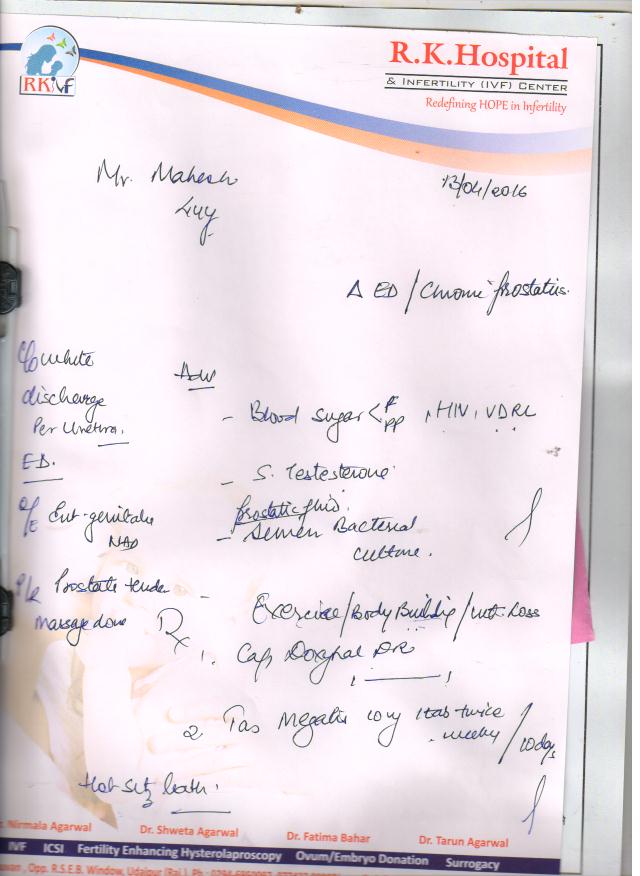 RKivf
R.K.Hospital
& INFERTILITY (IVF) CENTER
Redefining HOPE in Infertility
Mr. Mahesh
13/04/2016
44y
Δ ED / Chronic Prostatitis.
C/o white
discharge
Per Urethra.
Adv
- Blood Sugar < F PP , HIV, VDRL
ED.
- S. Testesterone
O/E Ext-genitalia
NAD
Prostatic fluid.
- Semen Bacterial
culture.
P/R Prostate tender
massage done
Exercise/Body Building/wt. Loss
Rx 1. Cap DR
2 Tab 10mg 1tab twice
weekly / 10days
Hot sitz bath.
Nirmala Agarwal
Dr. Shweta Agarwal
Dr. Fatima Bahar
Dr. Tarun Agarwal
IVF ICSI Fertility Enhancing Hysterolaproscopy Ovum/Embryo Donation Surrogacy
Opp. R.S.E.B. Window, Udaipur (Raj.), Ph.: